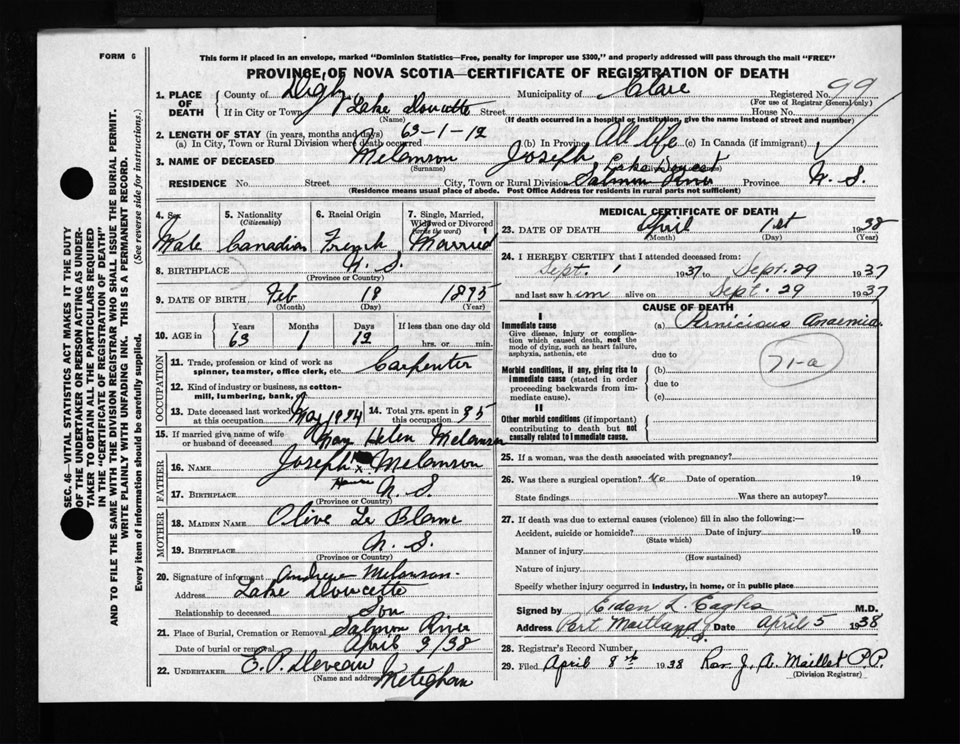 FORM 6
This form if placed in an envelope, marked "Dominion Statistics—Free, penalty for improper use $300," and properly addressed will pass through the mail "FREE"
PROVINCE OF NOVA SCOTIA—CERTIFICATE OF REGISTRATION OF DEATH
1. PLACE OF DEATH County of Digby Municipality of Clare Registered No. 99
(For use of Registrar General only)
If in City or Town Lake Doucette Street House No.
(Name) (If death occurred in a hospital or institution, give the name instead of street and number)
2. LENGTH OF STAY (in years, months and days) 63-1-12 All life
(a) In City, Town or Rural Division where death occurred (b) In Province (c) In Canada (if immigrant)
3. NAME OF DECEASED Melanson Joseph
(Surname)
Lake Doucet
RESIDENCE No. Street City, Town or Rural Division Salmon River Province N. S.
(Residence means usual place of abode. Post Office Address for residents in rural parts not sufficient)
4. Sex
Male
5. Nationality
(Citizenship)
Canadian
6. Racial Origin
French
7. Single, Married, Widowed or Divorced
(write the word)
Married
8. BIRTHPLACE N. S.
(Province or Country)
9. DATE OF BIRTH Feb 18 1875
(Month) (Day) (Year)
10. AGE in Years Months Days If less than one day old
63 1 12 hrs. or min.
OCCUPATION
11. Trade, profession or kind of work as
spinner, teamster, office clerk, etc. Carpenter
12. Kind of industry or business, as cotton-
mill, lumbering, bank, etc.
13. Date deceased last worked at this occupation May 1934
14. Total yrs. spent in this occupation 35
15. If married give name of wife or husband of deceased Mary Helen Melanson
FATHER
16. NAME Joseph Melanson
17. BIRTHPLACE N. S.
(Province or Country)
MOTHER
18. MAIDEN NAME Olive Le Blanc
19. BIRTHPLACE N. S.
(Province or Country)
20. Signature of informant Andrew Melanson
Address Lake Doucette
Relationship to deceased Son
21. Place of Burial, Cremation or Removal Salmon River
Date of burial or removal April 3/38
22. UNDERTAKER E. P. Deveau
(Name and address) Meteghan
MEDICAL CERTIFICATE OF DEATH
23. DATE OF DEATH April 1st 1938
(Month) (Day) (Year)
24. I HEREBY CERTIFY that I attended deceased from:
Sept. 1 1937 to Sept. 29 1937
and last saw him alive on Sept. 29 1937
CAUSE OF DEATH
I
Immediate cause (a) Pernicious Anaemia
Give disease, injury or complication which caused death, not the mode of dying, such as heart failure, asphyxia, asthenia, etc
due to
71-a
Morbid conditions, if any, giving rise to immediate cause (stated in order proceeding backwards from immediate cause).
(b)
due to
(c)
II
Other morbid conditions (if important) contributing to death but not causally related to immediate cause.
25. If a woman, was the death associated with pregnancy?
26. Was there a surgical operation? No Date of operation 19
State findings Was there an autopsy?
27. If death was due to external causes (violence) fill in also the following:—
Accident, suicide or homicide? Date of injury 19
(State which)
Manner of injury
(How sustained)
Nature of injury
Specify whether injury occurred in industry, in home, or in public place
Signed by Eldon L. Eagles M.D.
Address Port Maitland N.S. Date April 5 1938
28. Registrar's Record Number
29. Filed April 8th 1938 Rev. J. A. Maillet P.P.
(Division Registrar)
SEC. 46—VITAL STATISTICS ACT MAKES IT THE DUTY
OF THE UNDERTAKER OR PERSON ACTING AS UNDER-
TAKER TO OBTAIN ALL THE PARTICULARS REQUIRED
IN THE "CERTIFICATE OF REGISTRATION OF DEATH"
AND TO FILE THE SAME WITH THE DIVISION REGISTRAR WHO SHALL ISSUE THE BURIAL PERMIT.
WRITE PLAINLY WITH UNFADING INK. THIS IS A PERMANENT RECORD.
Every item of information should be carefully supplied. (See reverse side for instructions.)